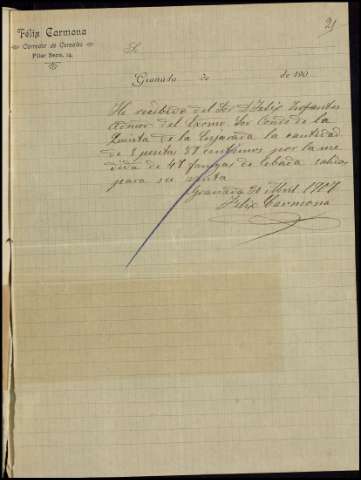 Félix Carmona
Corredor de Cereales
Pilar Seco, 14.
21
S.
Granada de de 190
He recibido del Sor D Felix Infantes
Admor del Excmo. Sor Conde de la
Quinta de la Enjarada la cantidad
de 5 centimos por la me
dida de 48 fangas de cebada
para su
Granada 30 Abril 1907.
Felix Carmona